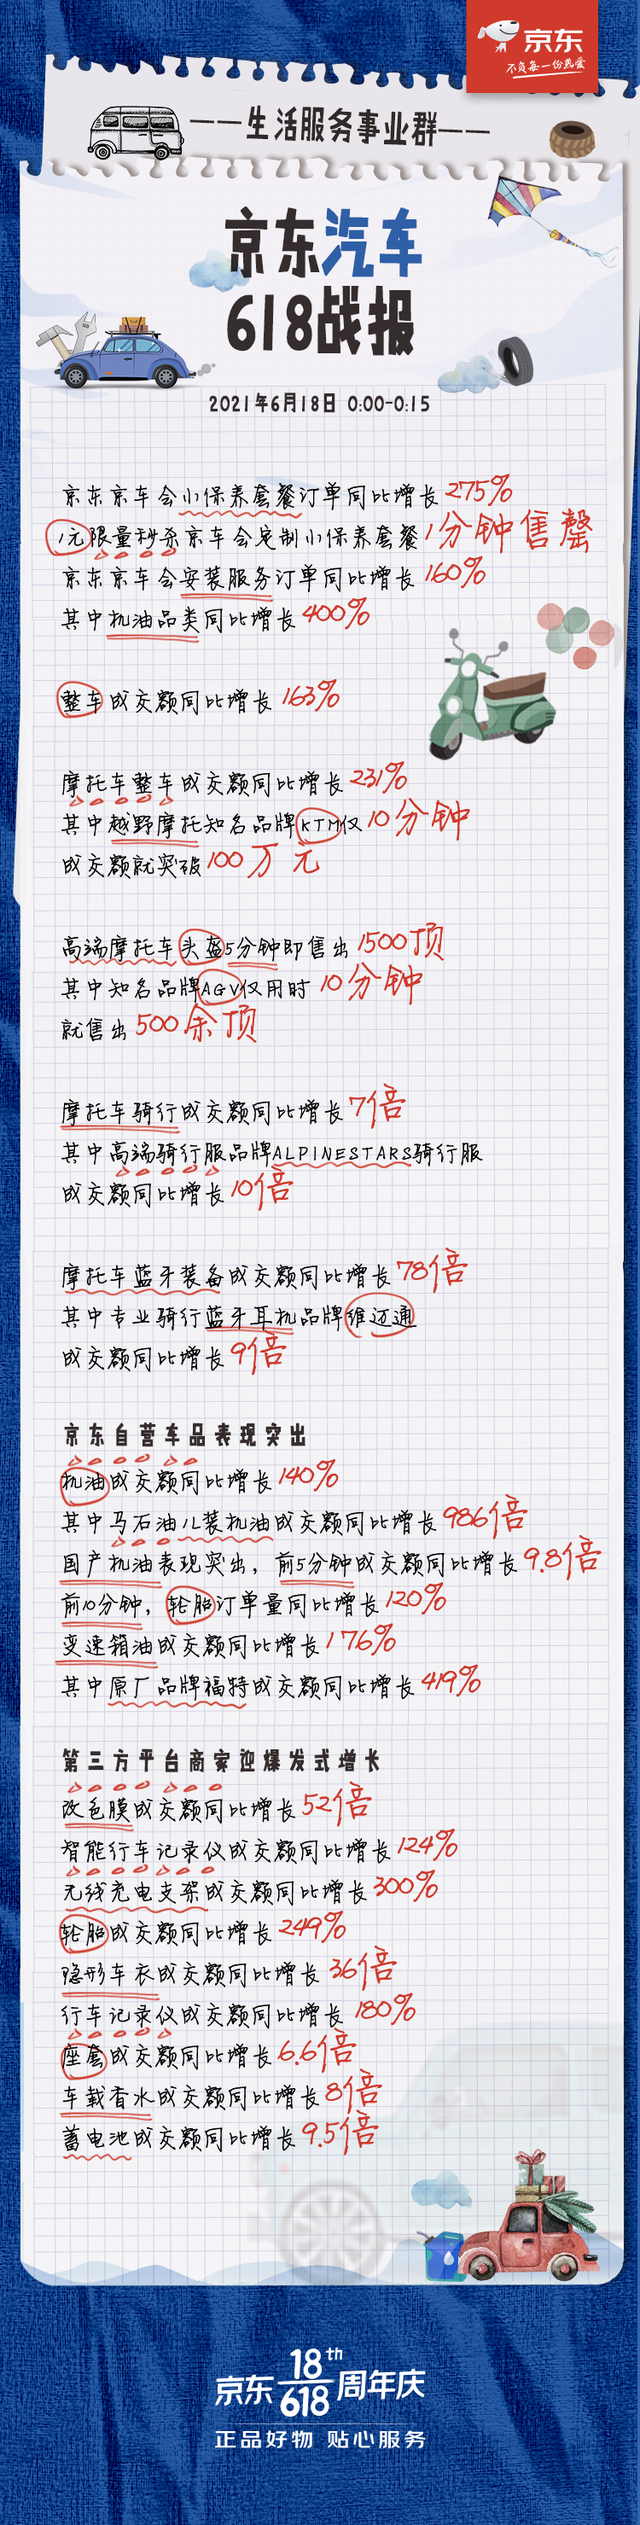 京东
不负每一份热爱
——生活服务事业群——
京东汽车
618战报
2021年6月18日 0:00-0:15
京东京车会小保养套餐订单同比增长275%
1元限量秒杀京车会定制小保养套餐1分钟售罄
京东京车会安装服务订单同比增长160%
其中机油品类同比增长400%
整车成交额同比增长163%
摩托车整车成交额同比增长231%
其中越野摩托知名品牌KTM仅10分钟
成交额就突破100万元
高端摩托车头盔5分钟即售出1500顶
其中知名品牌AGV仅用时10分钟
就售出500余顶
摩托车骑行成交额同比增长7倍
其中高端骑行服品牌ALPINESTARS骑行服
成交额同比增长10倍
摩托车蓝牙装备成交额同比增长78倍
其中专业骑行蓝牙耳机品牌维迈通
成交额同比增长9倍
京东自营车品表现突出
机油成交额同比增长140%
其中马石油儿装机油成交额同比增长986倍
国产机油表现突出，前5分钟成交额同比增长9.8倍
前10分钟，轮胎订单量同比增长120%
变速箱油成交额同比增长176%
其中原厂品牌福特成交额同比增长419%
第三方平台商家迎爆发式增长
改色膜成交额同比增长52倍
智能行车记录仪成交额同比增长124%
无线充电支架成交额同比增长300%
轮胎成交额同比增长249%
隐形车衣成交额同比增长36倍
行车记录仪成交额同比增长180%
座套成交额同比增长6.6倍
车载香水成交额同比增长8倍
蓄电池成交额同比增长9.5倍
京东18th 618周年庆
正品好物 贴心服务